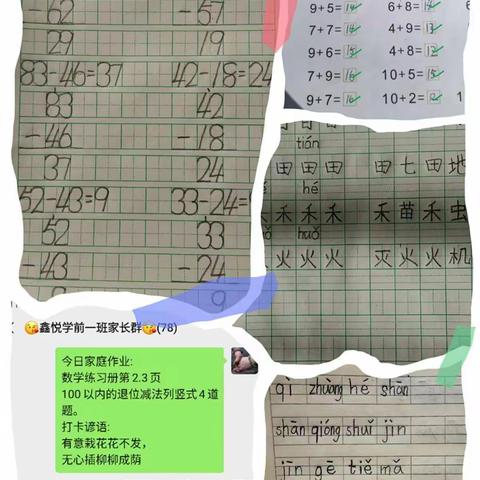 -62 -57
29 19
83-46=37 42-18=24
83 42
-46 -18
37 24
52-43=9 33-24=
52 33
-43 -24
9
9+5=14 6+8=14
7+7=14 4+9=13
9+6=15 4+8=12
7+9=16 10+5=15
9+7=16 10+2=12 1
tián
田 田 田 田 七 田 地
hé
禾 禾 禾 禾 苗 禾 虫
huǒ
火 火 火 灭 火 火 机
😘鑫悦学前一班家长群😘(78)
今日家庭作业:
数学练习册第2.3页
100以内的退位减法列竖式4道
题。
打卡谚语:
有意栽花花不发,
无心插柳柳成荫
qì zhuàng hé shān
shān qióng shuǐ jìn
jīn gē tiě mǎ